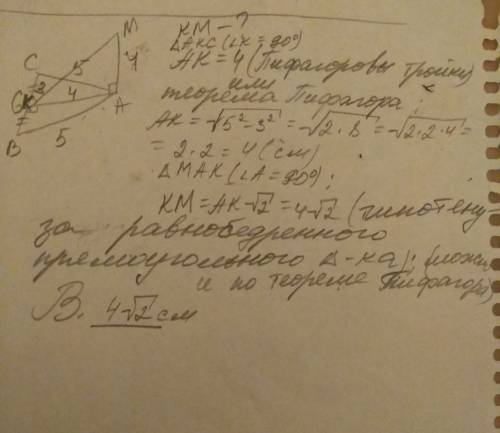 KM - ?
ΔAKC (∠K = 90°)
AK = 4 (Пифагоровы тройки)
или
теорема Пифагора:
AK = √5² - 3² = √2 · 8 = √2 · 2 · 4 =
= 2 · 2 = 4 (см)
ΔMAK (∠A = 90°);
KM = AK √2 = 4√2 (гипотену-
за равнобедренного
прямоугольного Δ-ка); (можно
и по теореме Пифагора)
В. 4√2 см
M
C
5
4
3
4
A
K
B
5